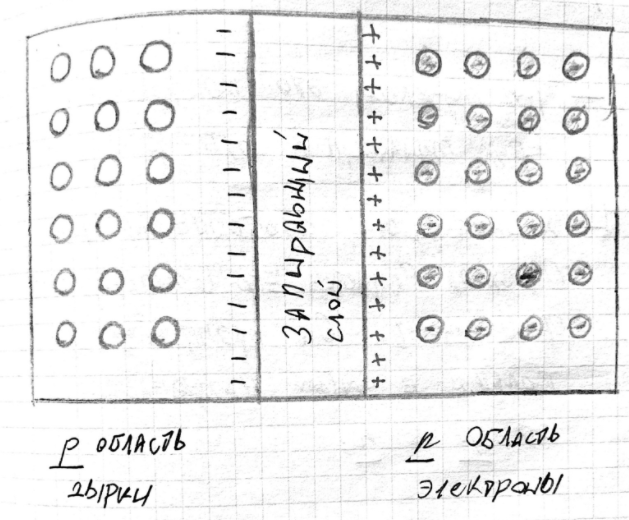 ЗАПИРАЮЩИЙ
СЛОЙ
p ОБЛАСТЬ
дырки
n ОБЛАСТЬ
электроны